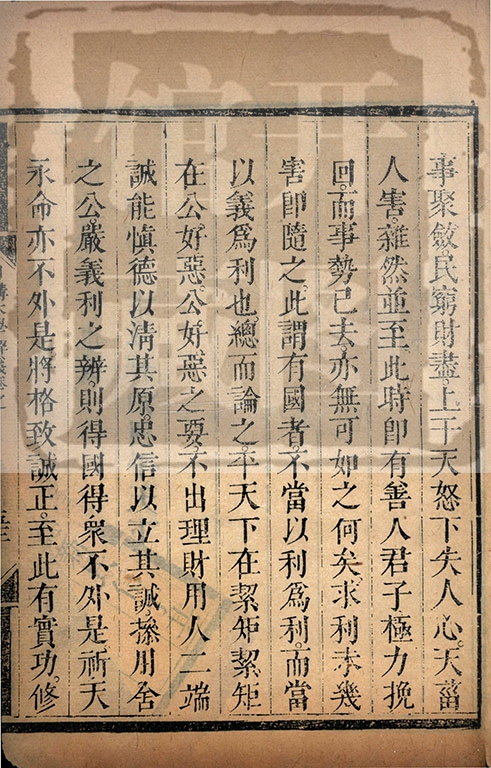 事聚斂民窮財盡上干天怒下失人心天菑
人害雜然並至此時即有善人君子極力挽
回而事勢已去亦無可如之何矣求利未幾
害即隨之此謂有國者不當以利爲利而當
以義爲利也總而論之平天下在絜矩絜矩
在公好惡公好惡之要不出理財用人二端
誠能愼德以清其原忠信以立其誠操用舍
之公嚴義利之辨則得國得衆不外是祈天
永命亦不外是將格致誠正至此有實功修